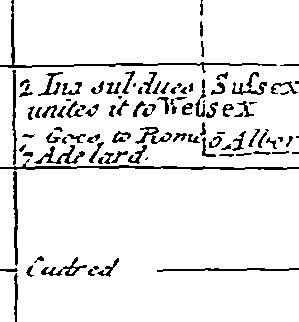 2 Ina subdues Sussex
unites it to Wessex
~ Goes to Rome 5 Alber
7 Adelard
Cudred